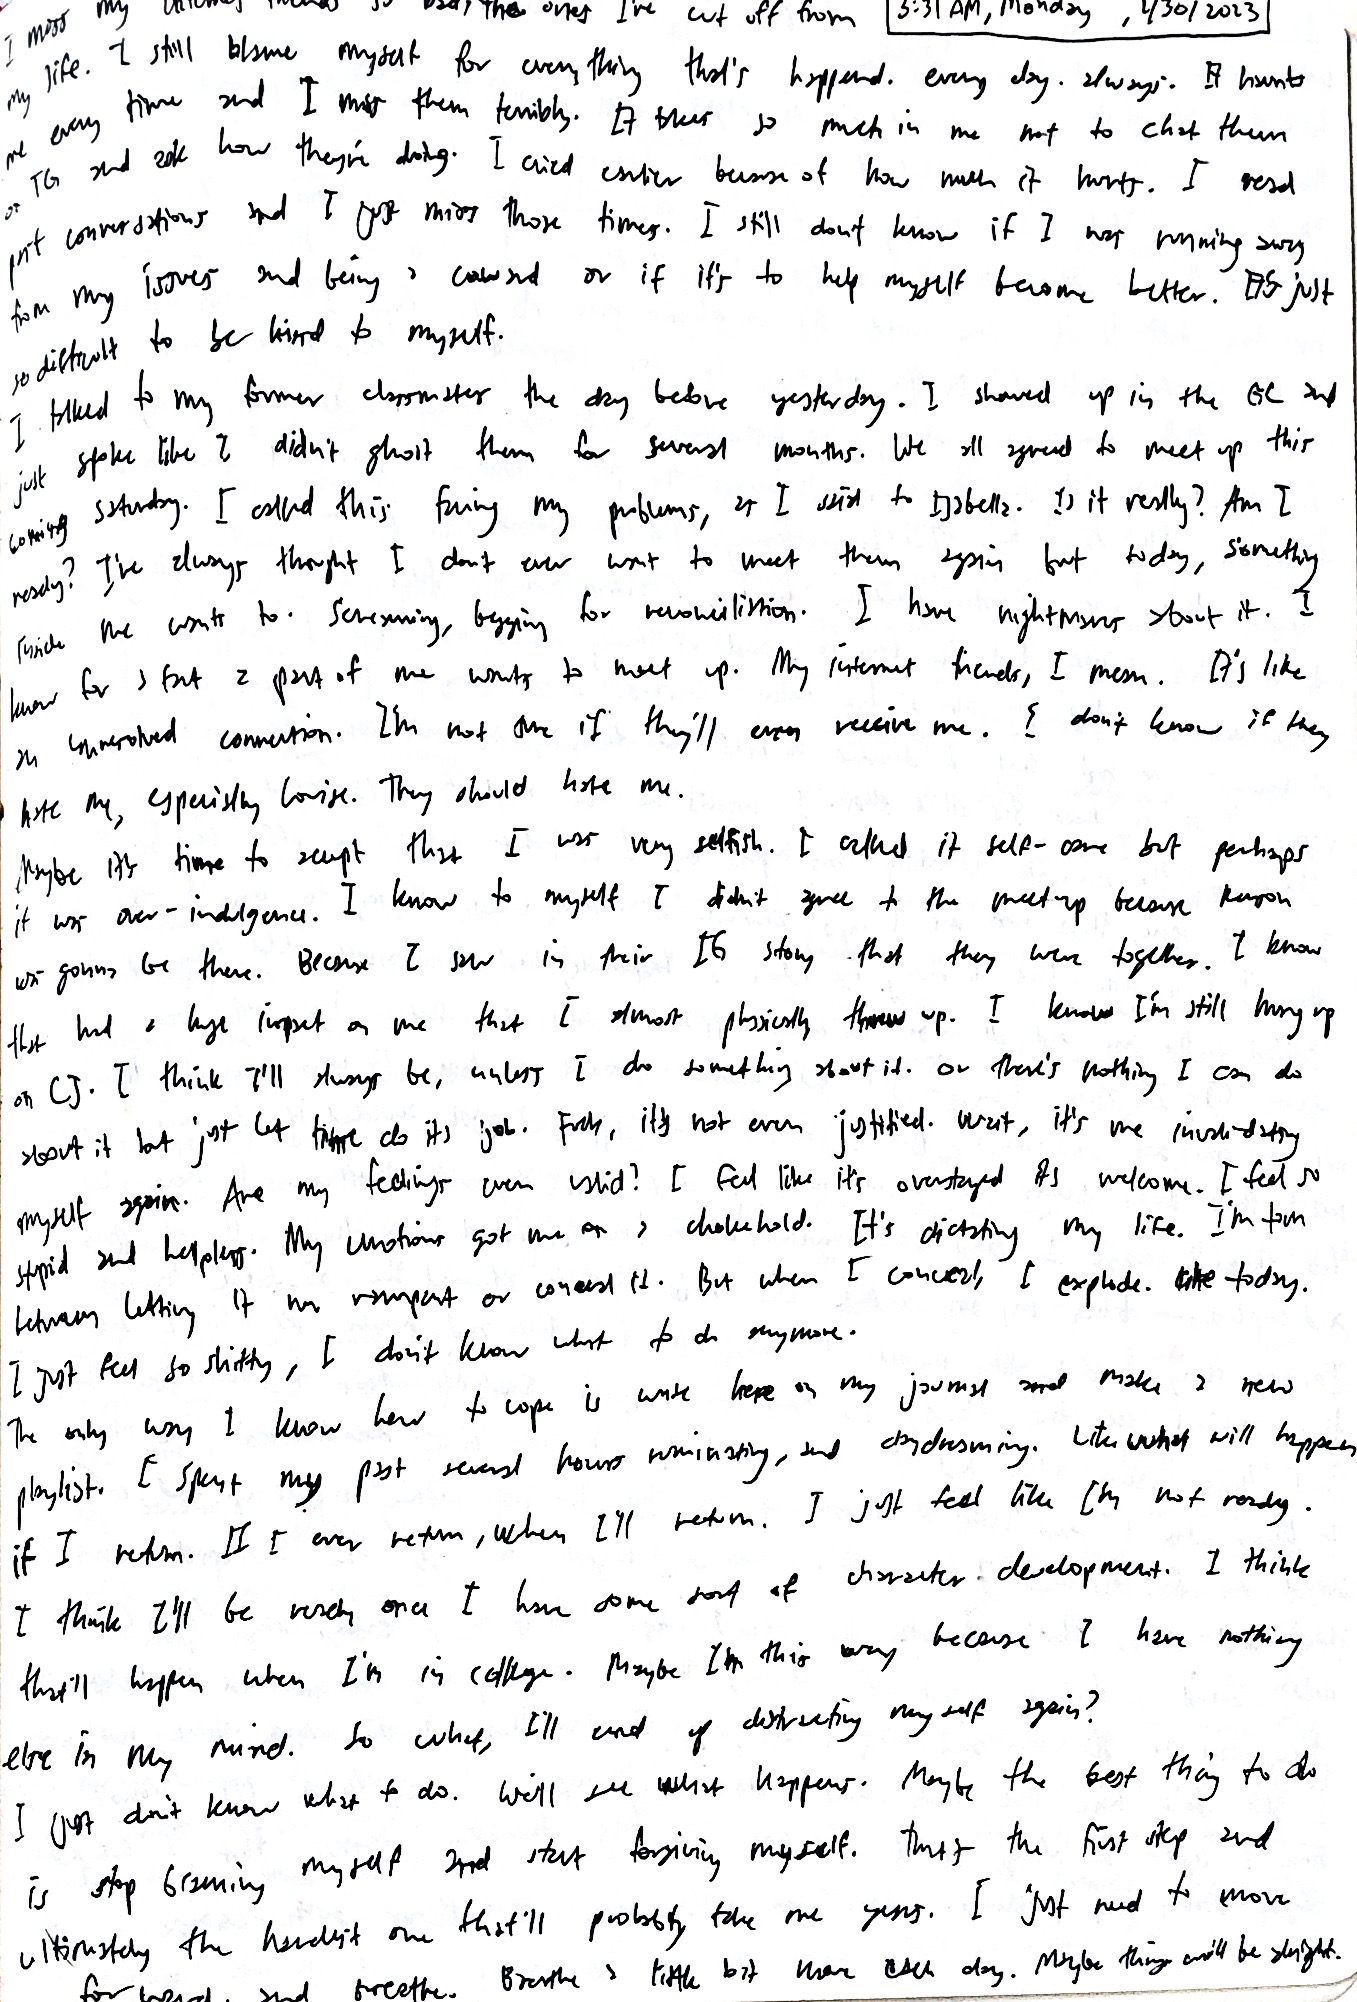 5:31 AM, Monday, 1/30/2023
I miss my internet friends so bad, the ones I've cut off from
my life. I still blame myself for everything that's happend. every day. always. It haunts
me every time and I miss them terribly. It takes so much in me not to chat them
on TG and ask how they're doing. I cried earlier because of how much it hurts. I read
past conversations and I just miss those times. I still don't know if I was running away
from my issues and being a coward or if it's to help myself become better. It's just
so difficult to be kind to myself.
I talked to my former classmates the day before yesterday. I showed up in the GC and
just spoke like I didn't ghost them for several months. We all agreed to meet up this
coming Saturday. I called this facing my problems, as I said to Isabella. Is it really? Am I
ready? I've always thought I don't ever want to meet them again but today, something
inside me wants to. Screaming, begging for reconciliation. I have nightmares about it. I
know for a fact a part of me wants to meet up. My internet friends, I mean. It's like
an unresolved connection. I'm not sure if they'll even receive me. I don't know if they
hate me, especially Louise. They should hate me.
Maybe it's time to accept that I was very selfish. I called it self-care but perhaps
it was over-indulgence. I know to myself I didn't agree to the meet-up because
was gonna be there. Because I saw in their IG story that they were together. I know
that had a huge impact on me that I almost physically threw up. I know I'm still hung up
on CJ. I think I'll always be, unless I do something about it. or there's nothing I can do
about it but just let time do its job. Fuck, it's not even justified. wait, it's me invalidating
myself again. Are my feelings even valid? I feel like it's overstayed its welcome. I feel so
stupid and helpless. My emotions got me on a chokehold. It's dictating my life. I'm torn
between letting it run rampant or conceal it. But when I conceal, I explode. like today.
I just feel so shitty, I don't know what to do anymore.
The only way I know how to cope is write here on my journal and make a new
playlist. I spent my past several hours ruminating, and daydreaming. Like what will happen
if I return. If I ever return, when I'll return. I just feel like I'm not ready.
I think I'll be ready once I have some sort of character development. I think
that'll happen when I'm in college. Maybe I'm this way because I have nothing
else in my mind. So what, I'll end up distracting myself again?
I just don't know what to do. We'll see what happens. Maybe the best thing to do
is stop blaming myself and start forgiving myself. That's the first step and
ultimately the hardest one that'll probably take me years. I just need to move
forward. and breathe. Breathe a little bit more each day. Maybe things will be alright.